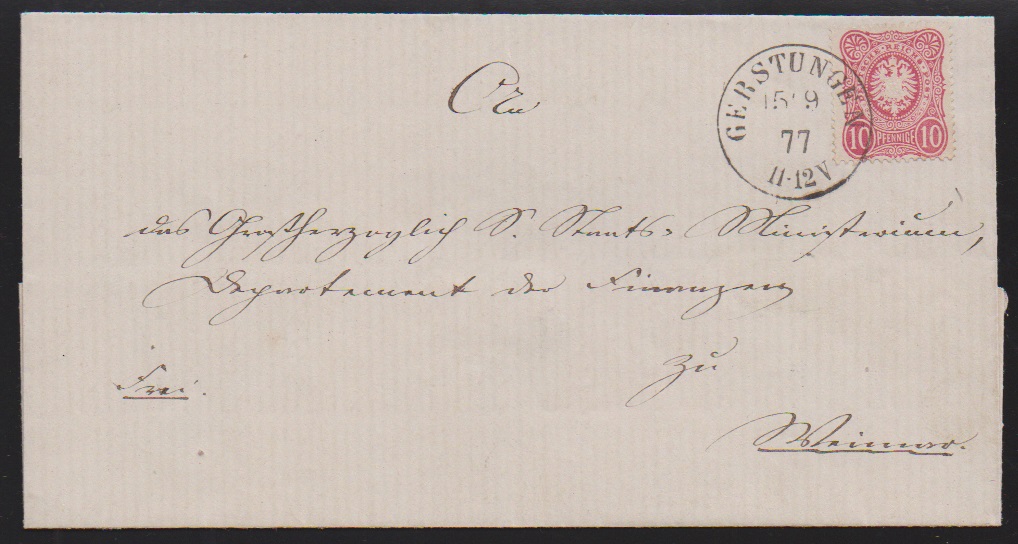 An
GERSTUNGEN
15/9
77
11-12V
DEUTSCHE REICHS-POST
10 PFENNIGE 10
das Großherzoglich S. Staats-Ministerium,
Departement der Finanzen
zu
Frei.
Weimar.